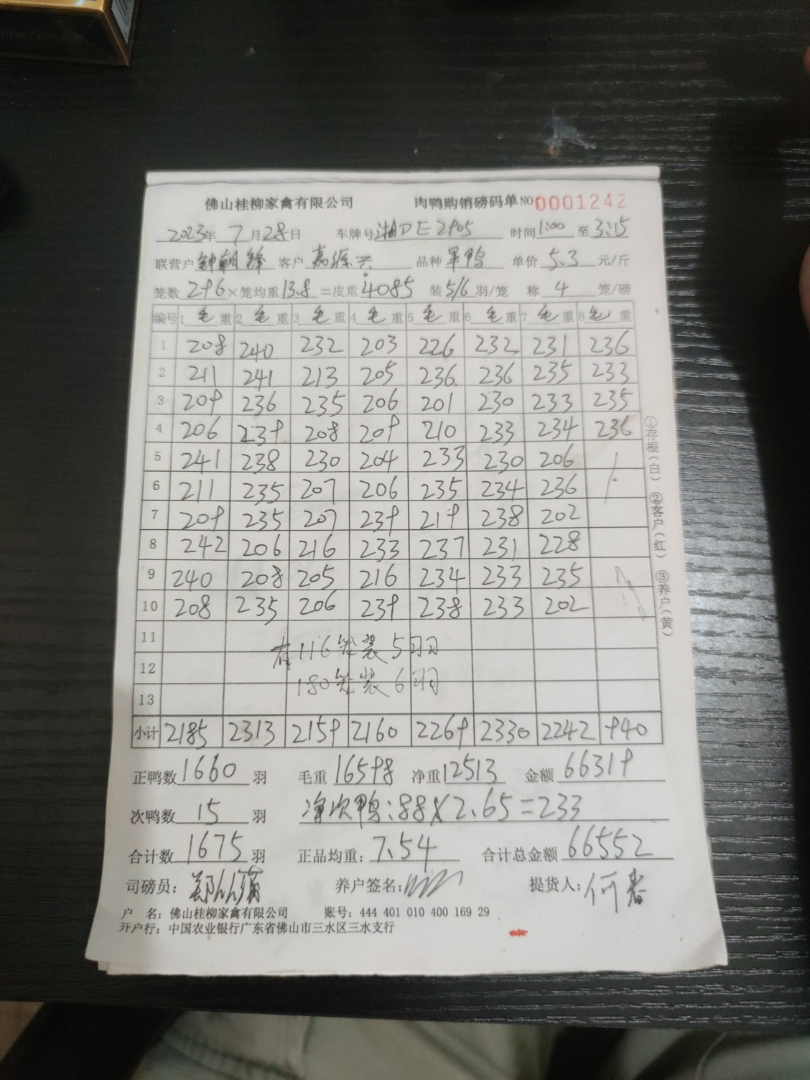 佛山桂柳家禽有限公司 肉鸭购销磅码单 NO 0001242
2023年 7月28日 车牌号 湘DE2905 时间 1:00 至 3:15
联营户 客户 品种 单价 5.3 元/斤
笼数 296 × 笼均重 13.8 = 皮重 4085 装 5/6 羽/笼 称 4 笼/磅
编号 1 毛 重 2 毛 重 3 毛 重 4 毛 重 5 毛 重 6 毛 重 7 毛 重 8 毛 重
1 208 240 232 203 226 232 231 236
2 211 241 213 205 236 236 235 233
3 209 236 235 206 201 230 233 235
4 206 239 208 209 210 233 234 236
5 241 238 230 204 233 230 206
6 211 235 207 206 235 234 236
7 209 235 207 239 219 238 202
8 242 206 216 233 237 231 228
9 240 208 205 216 234 233 235
10 208 235 206 239 238 233 202
11 有116笼装5羽
12
180笼装6羽
13
小计 2185 2313 2159 2160 2269 2330 2242 940
正鸭数 1660 羽 毛重 16598 净重 12513 金额 66319
次鸭数 15 羽 净次鸭:88×2.65=233
合计数 1675 羽 正品均重: 7.54 合计总金额 66552
司磅员: 养户签名: 提货人:
户 名: 佛山桂柳家禽有限公司 账号: 444 401 010 400 169 29
开户行: 中国农业银行广东省佛山市三水区三水支行
①存根(白) ②客户(红) ③养户(黄)